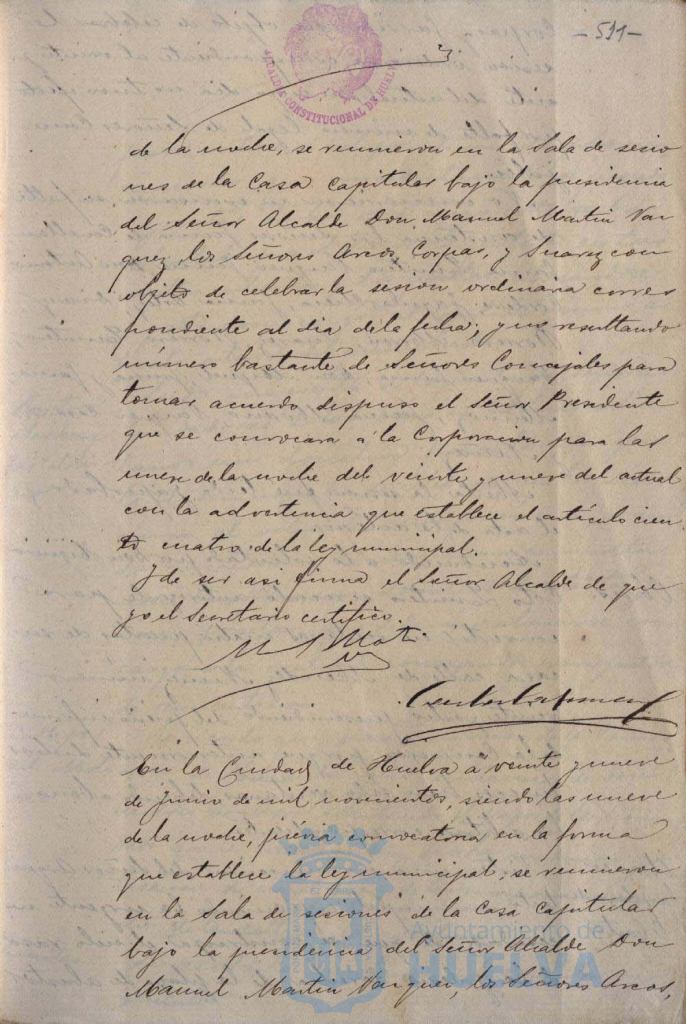 -591-
ALCALDIA CONSTITUCIONAL DE HUELVA
de la noche, se reunieron en la Sala de sesio
nes de la Casa capitular bajo la presidencia
del Señor Alcalde Don Manuel Martin Vaz
quez, los Señores Arcos, Corpas, y Suarez con
objeto de celebrar la sesion ordinaria corres
pondiente al dia de la fecha; y no resultando
número bastante de Señores Concejales para
tomar acuerdo dispuso el Señor Presidente
que se convocara á la Corporacion para las
nueve de la noche del veinte y nueve del actual
con la advertencia que establece el artículo cien-
to cuatro de la ley municipal.
Y de ser asi firma el Señor Alcalde de que
yo el Secretario certifico.
En la Ciudad de Huelva á veinte y nueve
de Junio de mil novecientos, siendo las nueve
de la noche, prévia convocatoria en la forma
que establece la ley municipal, se reunieron
en la Sala de sesiones de la Casa capitular
bajo la presidencia del Señor Alcalde Don
Manuel Martin Vazquez, los Señores Arcos,
Ayuntamiento de
HUELVA